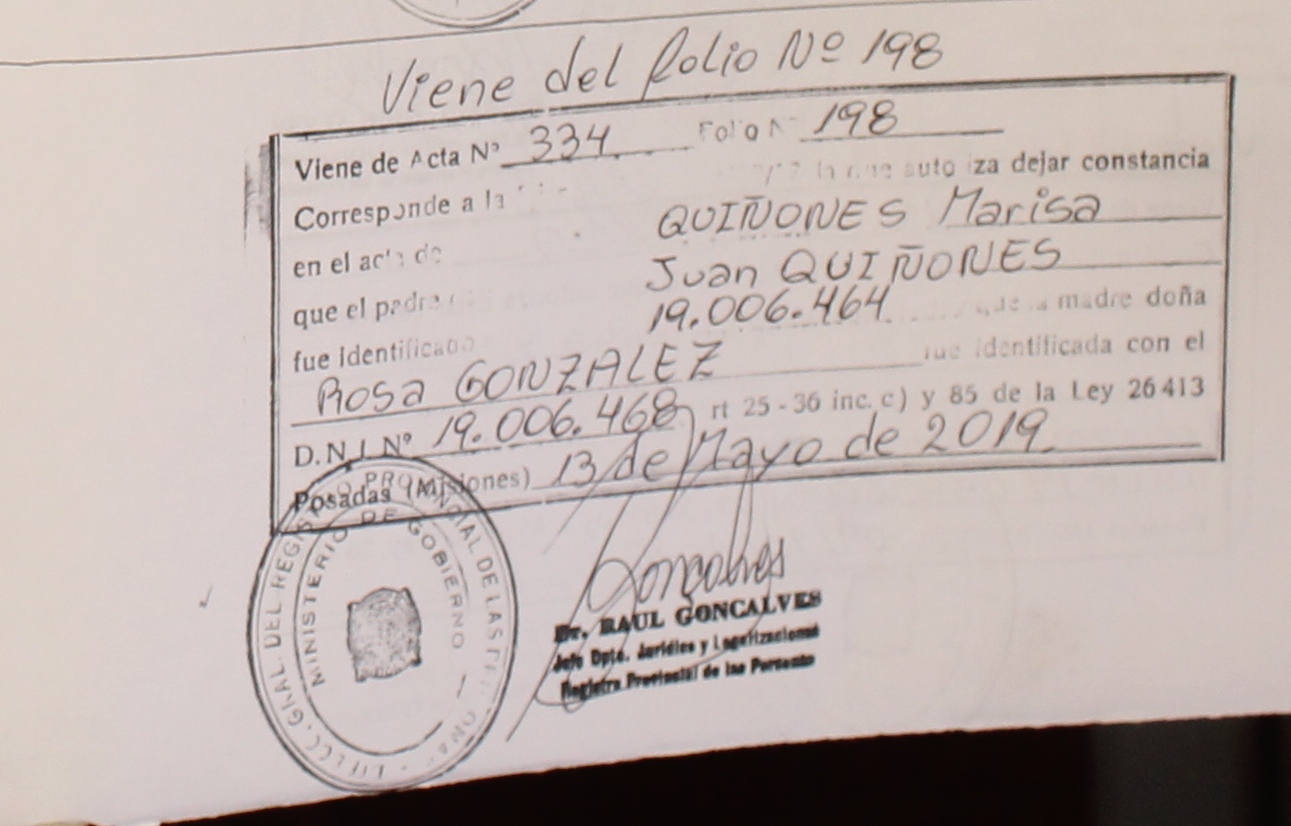 Viene del folio Nº 198
Viene de Acta Nº 334 Folio Nº 198
Corresponde a la que autoriza dejar constancia
en el acta de QUIÑONES Marisa
que el padre Juan QUIÑONES
fue identificado 19.006.464 que la madre doña
Rosa GONZALEZ fue identificada con el
D.N.I Nº 19.006.468 rt 25-36 inc. c) y 85 de la Ley 26413
Posadas (Misiones) 13 de Mayo de 2019.
GRAL. DEL REGISTRO PROVINCIAL DE LAS
MINISTERIO DE GOBIERNO
Goncalves
Dr. RAUL GONCALVES
Jefe Dpto. Jurídico y Legalizaciones
Registro Provincial de las Personas